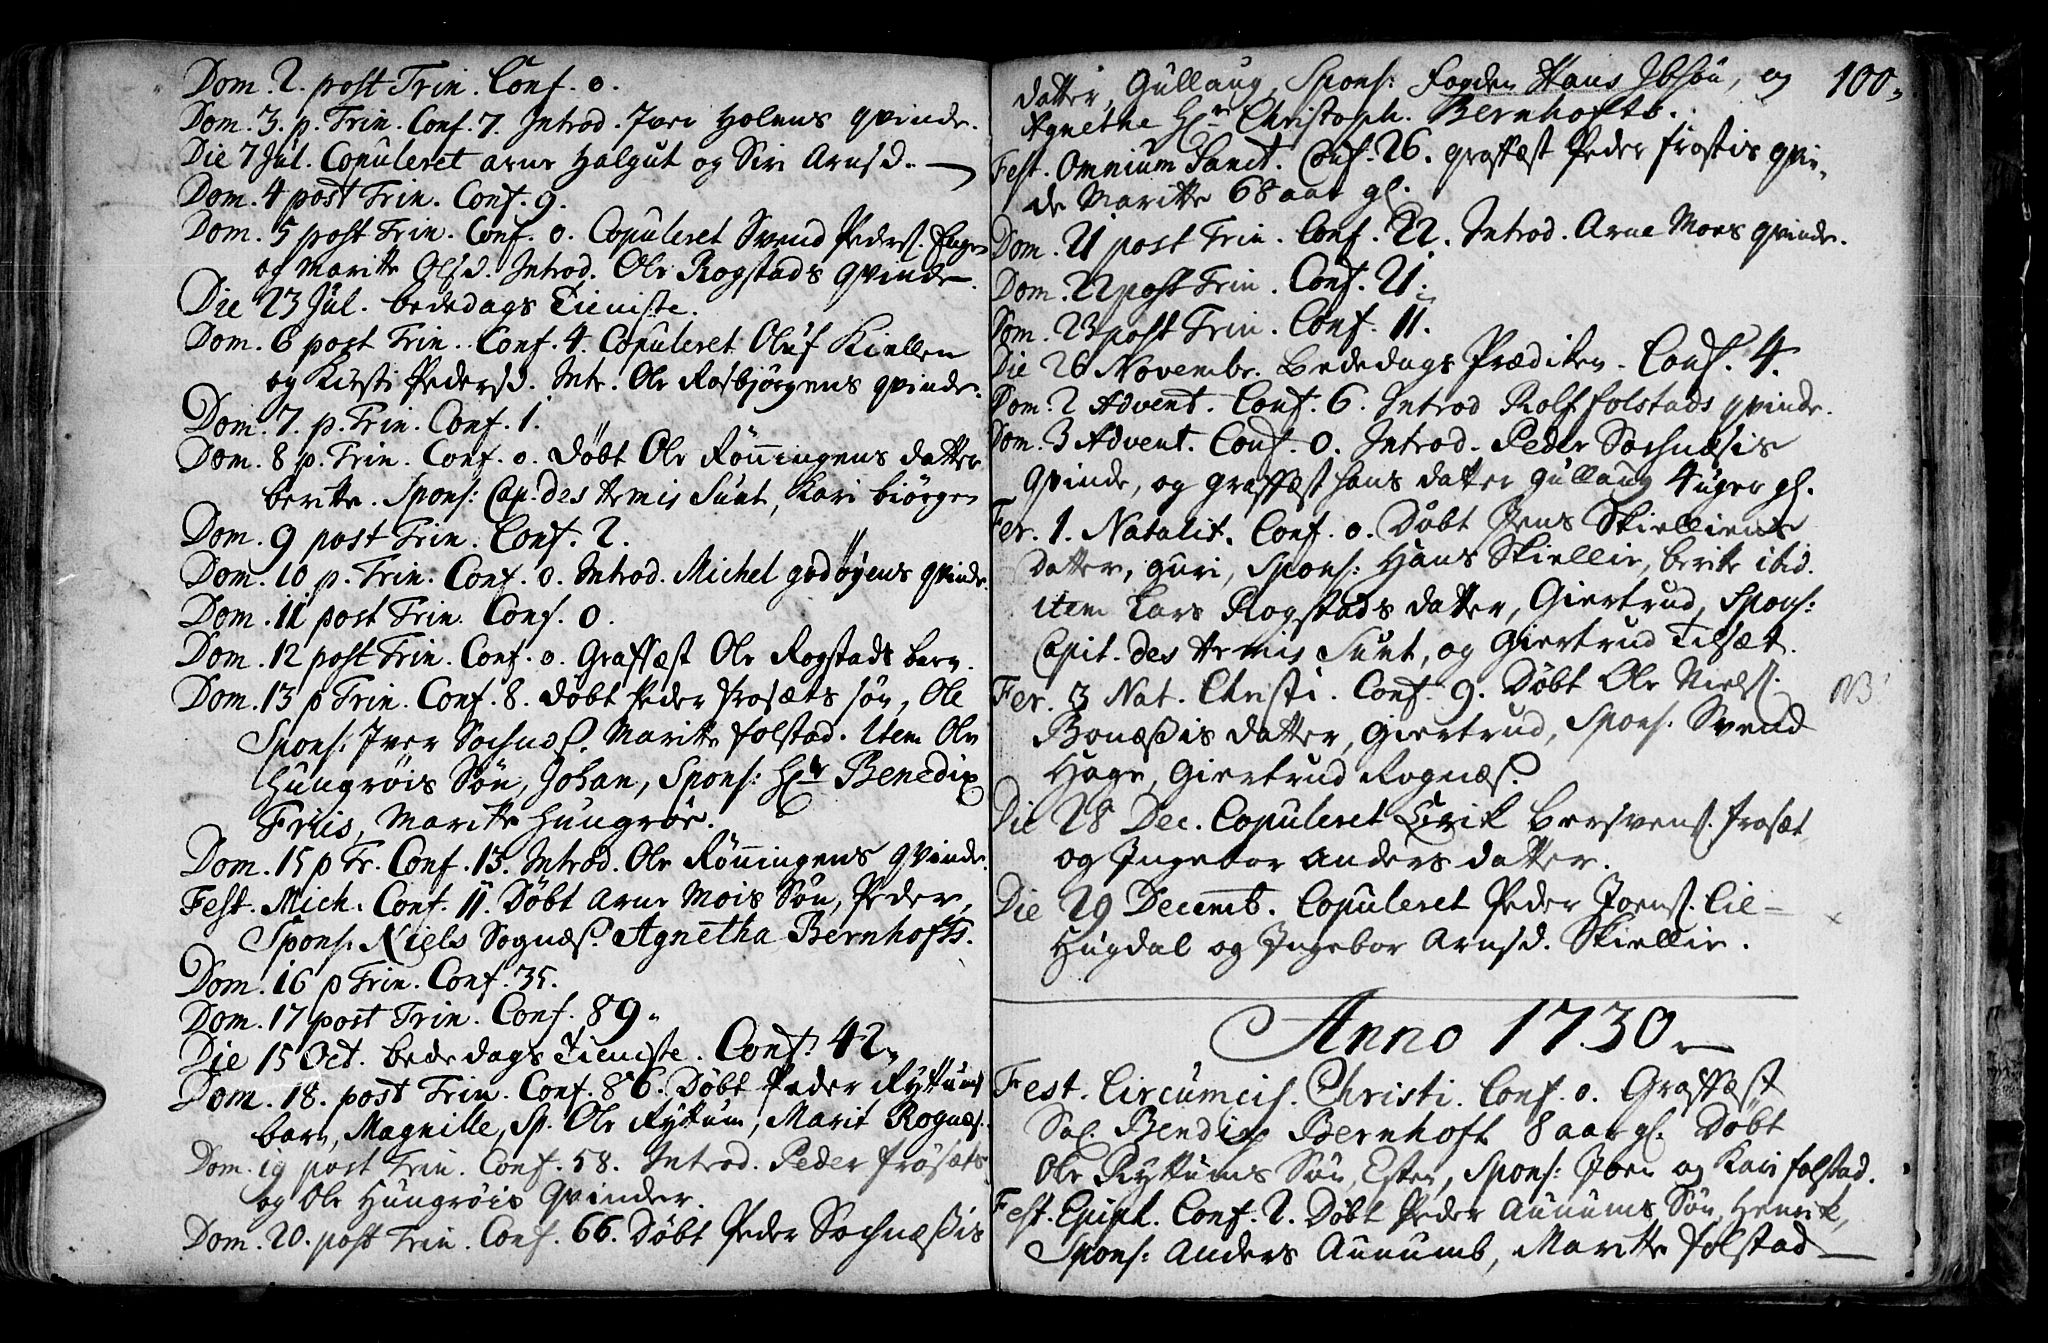 Dom. 2. post Trin. Conf. 0.
Dom. 3. p. Trin. Conf. 7. Introd. Iver Holens qvinde.
Die 7 Jul. Copuleret Arne Halgut og Siri Arnsd.
Dom. 4 post Trin. Conf. 9.
Dom. 5 post Trin. Conf. 0. Copuleret Svend Peders.
og Maritte Olsd. Introd. Ole Rogstads qvinde.
Die 23 Jul. bededags Tieniste.
Dom. 6 post Trin. Conf. 4. Copuleret Oluf Kiellen
og Kirsti Pedersd. Intr. Ole Rosbjørgens qvinde.
Dom. 7. p. Trin. Conf. 1.
Dom. 8 p. Trin. Conf. 0. Döbt Ole Rönningens datter
beritte. Spons: Cap. des Armis Sunt, Kari biörgen
Dom. 9 post Trin. Conf. 2.
Dom. 10 p. Trin. Conf. 0. Introd. Michel godöyens qvinde.
Dom. 11 post Trin. Conf. 0.
Dom. 12 post Trin. Conf. 0. Graffæst Ole Rogstads barn.
Dom. 13 p Trin. Conf. 8. döbt Peder frosæts sön, Ole
Spons: Iver Sochnæs. Maritte folstad. Item Ole
Hungröis Sön, Johan, Spons: Hr Benedix
Friis, Maritte Hungröe.
Dom. 15 p Tr. Conf. 13. Introd. Ole Rönningens qvinde.
Fest. Mich. Conf. 11. Döbt Arne Mois Sön, Peder,
Spons: Niels Sognæs. Agnetha Bernhofts.
Dom. 16 p Trin. Conf. 35.
Dom. 17 post Trin. Conf. 89.
Die 15 Oct. bededags Tieniste. Conf. 42.
Dom. 18. post Trin. Conf. 86. Döbt Peder Ryttums
barn, Magnille, Sp. Ole Ryttum, Marit Rognæs.
Dom. 19 post Trin. Conf. 58. Introd. Peder frösæts
og Ole Hungröis Qvinder.
Dom. 20. post Trin. Conf. 66. Döbt Peder Sochnæssis
100.
datter, Gullaug, Spons: fogden Hans Ibsön, og
Agnethe Hr Christoph. Bernhofts.
Fest. Omnium Sanct. Conf. 26. graffæst Peder frostis qvin-
de Maritte 68 aar gl.
Dom. 21 post Trin. Conf. 22. Introd. Arne Moes qvinde.
Dom. 22 post Trin. Conf. 21.
Dom. 23 post Trin. Conf. 11.
Die 26 Novembr. Bededags Prædiken. Conf. 4.
Dom. 2 Advent. Conf. 6. Introd Rolf folstads qvinde.
Dom. 3 Advent. Conf. 0. Introd. Peder Sochnæsis
Qvinde, og graffæst hans datter gullaug 4 uger gl.
Fer. 1. Natalit. Conf. 0. Döbt Jens Skielliens
Datter, guri, Spons: Hans Skiellie, berite ibid.
item Lars Rogstads datter, Giertrud, Spons:
Capit. des Armis Sunt, og Giertrud Tilsæt.
Fer. 3 Nat. Christi. Conf. 9. Döbt Ole Niels.
NB
Bonæssis datter, Giertrud, Spons: Svend
Hage, Giertrud Rognæs.
Die 28 Dec. Copuleret Erik Bersvens. frosæt
og Ingebor Anders datter.
Die 29 Decemb. Copuleret Peder Joens. Lie-
Hugdal og Ingebor Arnsd. Skiellie.
Anno 1730.
Fest. Circumcis. Christi. Conf. 0. Graffæst
Sal. Bendix Bernhoft 8 aar gl. Döbt
Ole Ryttums Sön, Esten, Spons: Joen og Kari folstad.
Fest. Epiph. Conf. 2. Döbt Peder Aunums Sön, Henrik,
Spons: Anders Aunumb, Maritte folstad